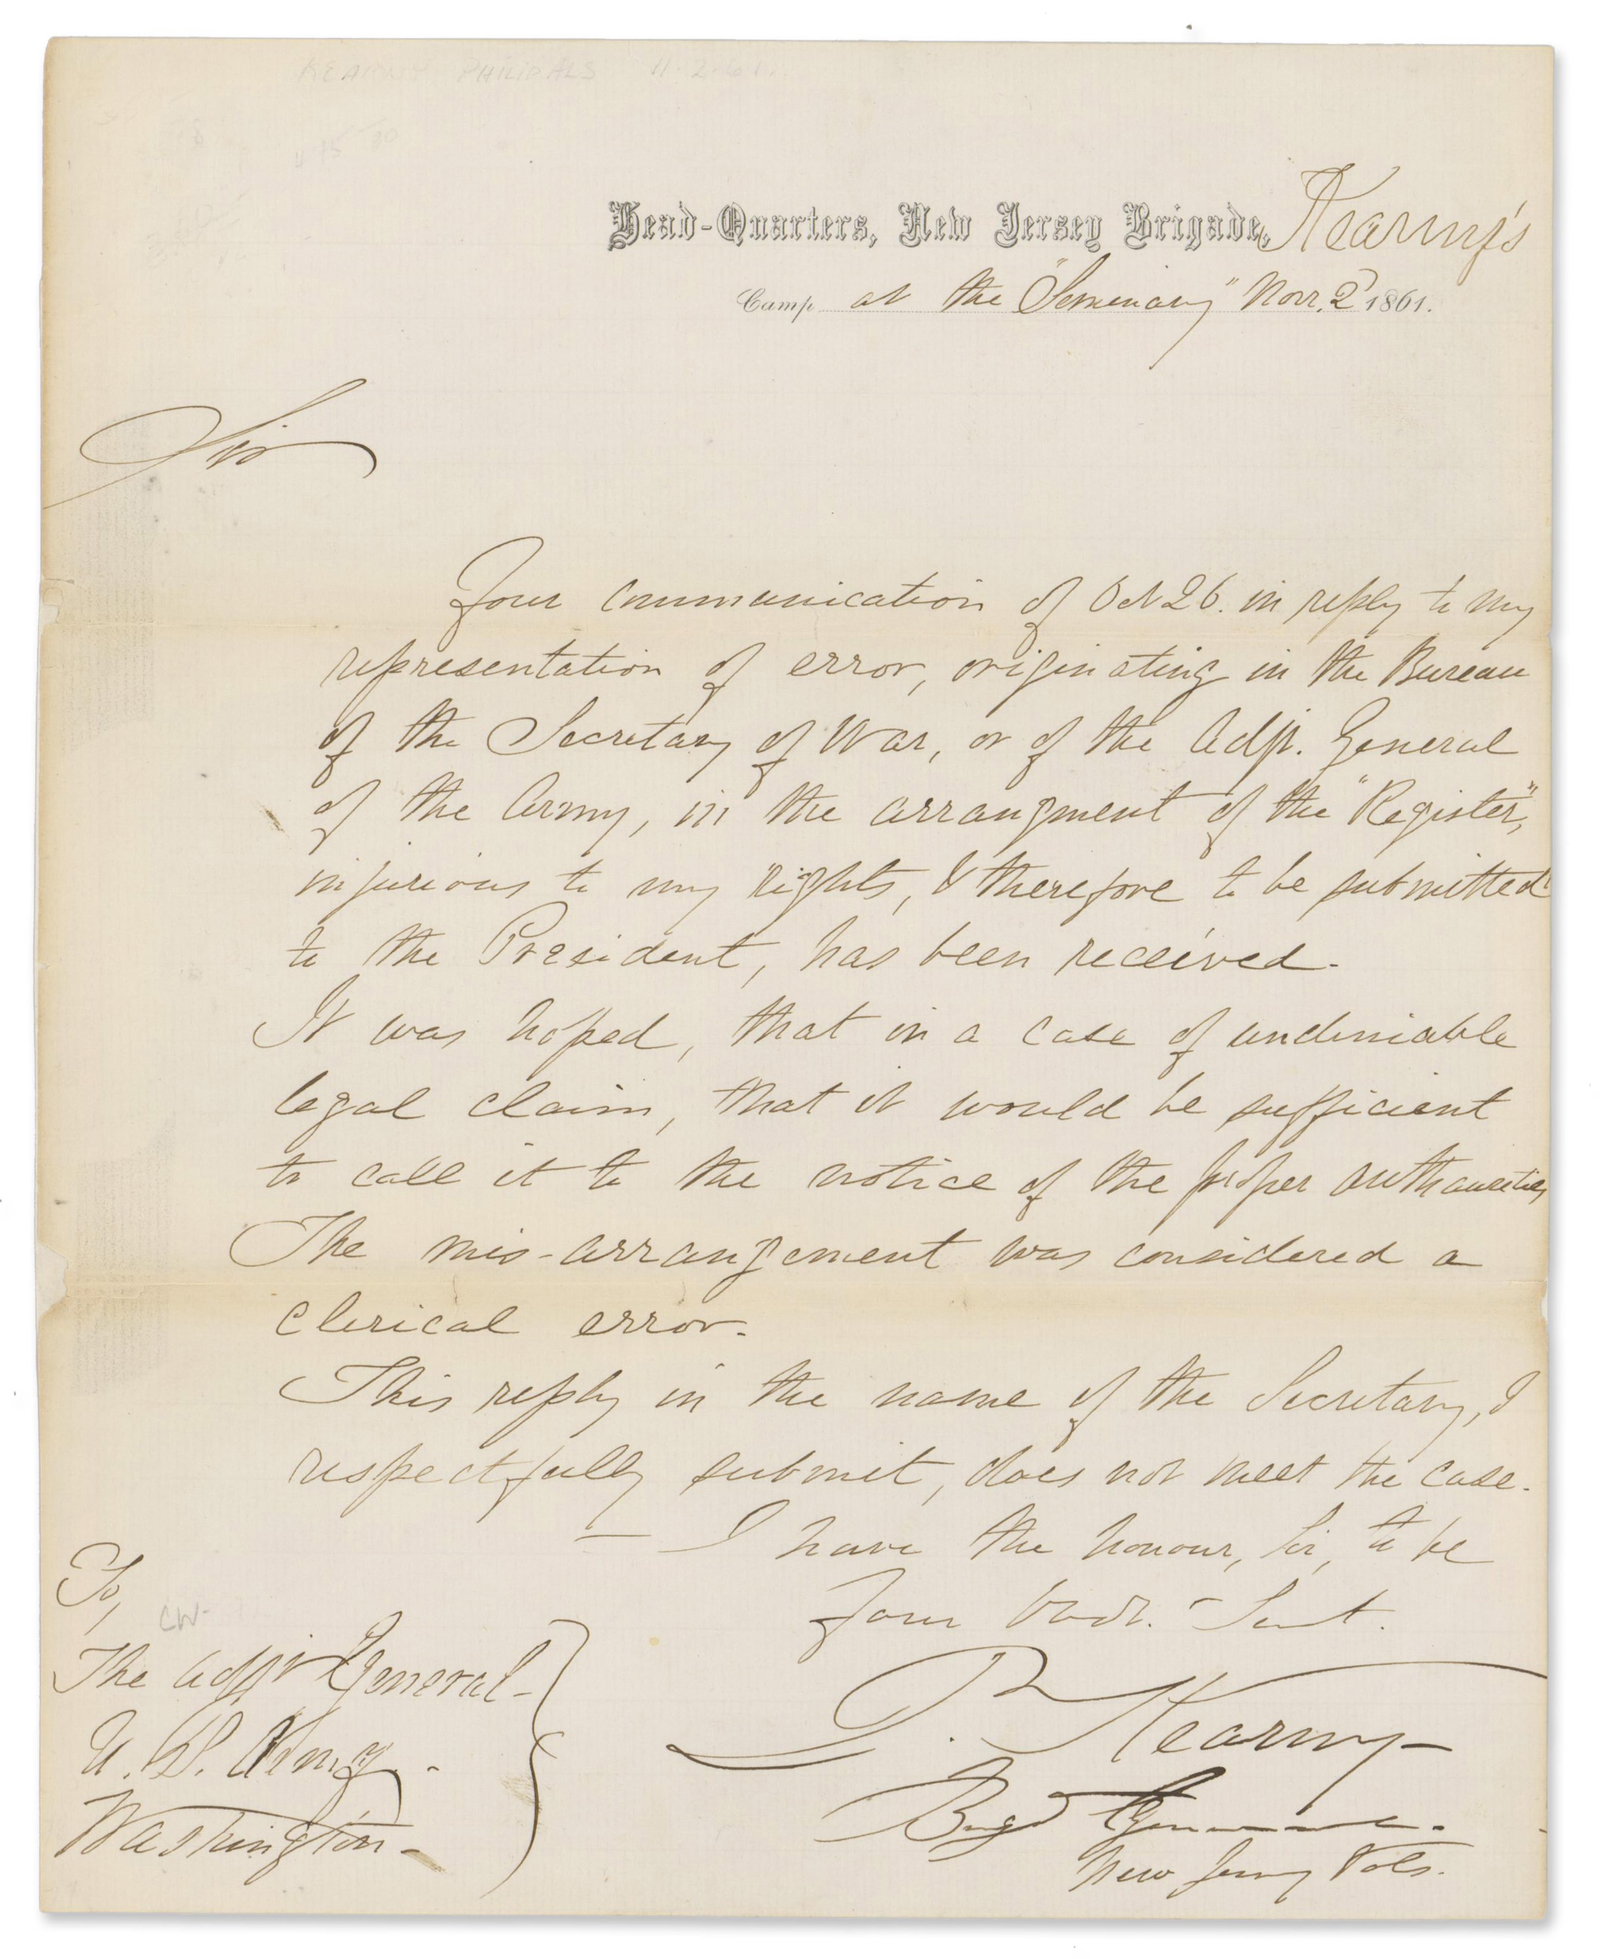 KEARNY PHILIP ALS 11-2-61
Head-Quarters, New Jersey Brigade, Kearny's
Camp at the "Seminary" Novr. 2d 1861.
Sir
Your communication of Oct 26. in reply to my
representation of error, originating in the Bureau
of the Secretary of War, or of the Adjt. General
of the Army, in the arrangment of the "Register",
injurious to my rights, & therefore to be submitted
to the President, has been received.
It was hoped, that in a case of undeniable
legal claim, that it would be sufficient
to call it to the notice of the proper authourities
The mis-arrangement was considered a
clerical error.
This reply in the name of the Secretary, I
respectfully submit, does not meet the case.
— I have the honour, Sir, to be
Your Obdt. Sevt.
P. Kearny —
Brigd General.
New Jersey Vols.
To,
CW-
The Adjt General-
U. S. Army.-
Washington-